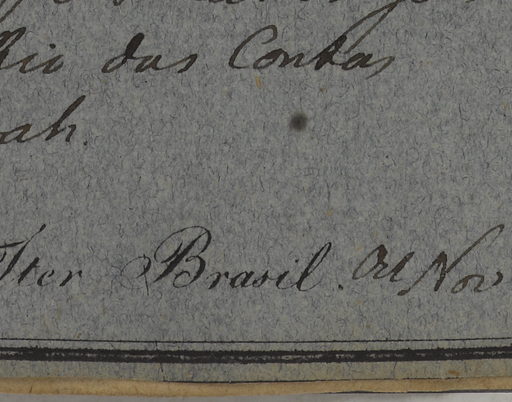 Rio das Contas
ah.
Iter Brasil. Oct Nov